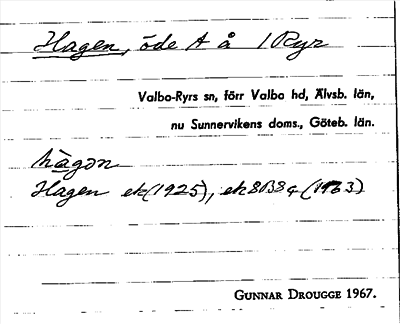 Hagen, öde A å 1 Ryr
Valbo-Ryrs sn, förr Valbo hd, Älvsb. län,
nu Sunnervikens doms., Göteb. län.
hàgon
Hagen ek (1925), ek 8B3 (1963)
GUNNAR DROUGGE 1967.